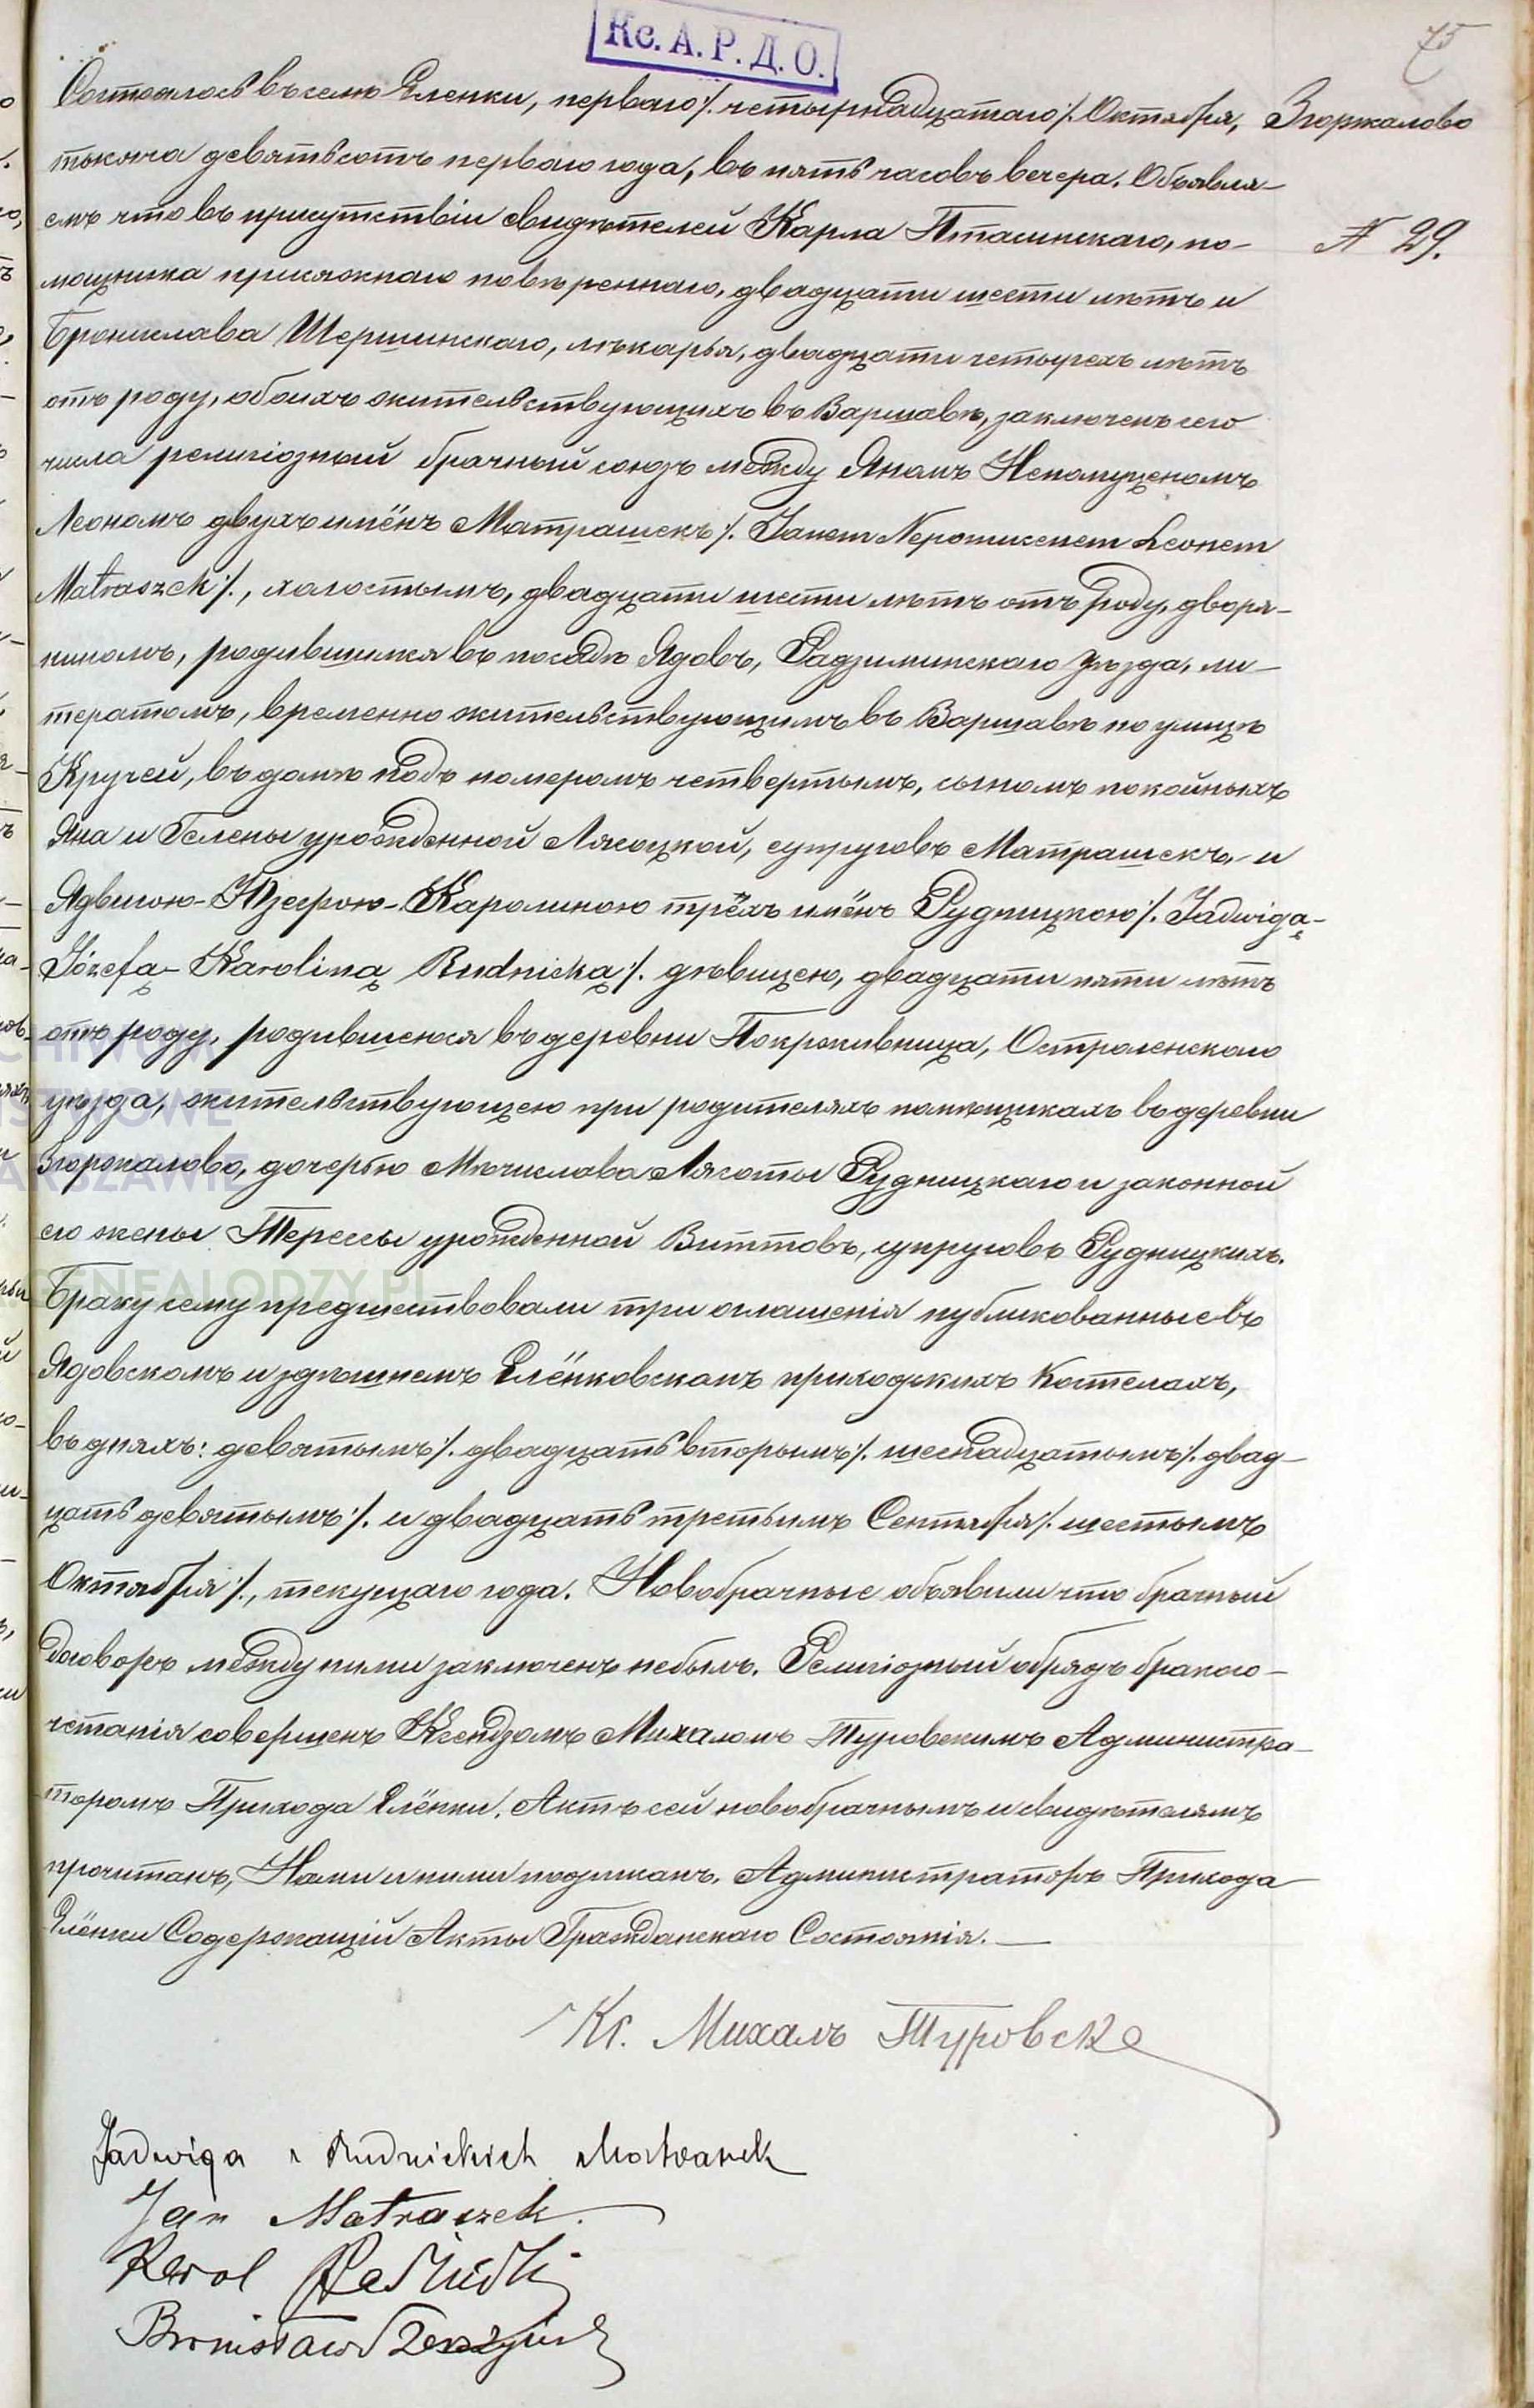 Кс. А. Р. Д. О.
75
Состоялось въ селѣ Еленки, перваго /. четырнадцатаго /. Октября,
Згоржалово
тысяча девятьсотъ перваго года, въ пять часовъ вечера. Объявля-
емъ что въ присутствіи свидѣтелей Карла Пташинскаго, по-
№ 29.
мощника присяжнаго повѣреннаго, двадцати шести лѣтъ и
Бронислава Шершинскаго, лѣкарья, двадцати четырехъ лѣтъ
отъ роду, обоихъ жительствующихъ въ Варшавѣ, заключенъ сего
числа религіозный брачный союзъ между Яномъ Непомуценомъ
Леономъ двухъ имёнъ Матрашекъ /. Janem Nepomucenem Leonem
Matraszek /., холостымъ, двадцати шести лѣтъ отъ роду, дворя-
ниномъ, родившимся въ посадѣ Ядовъ, Радзиминскаго уѣзда, ли-
тератомъ, временно жительствующимъ въ Варшавѣ по улицѣ
Кручей, въ домѣ подъ номеромъ четвертымъ, сыномъ покойныхъ
Яна и Гелены урожденной Лясоцкой, супруговъ Матрашекъ, и
Ядвигою-Юзефою-Каролиною трёхъ имёнъ Рудницкою /. Jadwigą-
Józefą- Karoliną Rudnicką /. дѣвицею, двадцати пяти лѣтъ
отъ роду, родившеюся въ деревни Покрживница, Остроленскаго
уѣзда, жительствующею при родителяхъ помѣщикахъ въ деревни
Згоржалово, дочерью Мѣчислава Лясоты Рудницкаго и законной
его жены Терессы урожденной Виттовъ, супруговъ Рудницкихъ.
Браку сему предшествовали три оглашенія публикованные въ
Ядовскомъ и здѣшнемъ Елёнковскомъ приходскихъ Костелахъ,
въ дняхъ: девятымъ /. двадцать вторымъ /. шестнадцатымъ /. двад-
цать девятымъ /. и двадцать третьимъ Сентября /. шестымъ
Октября /., текущаго года. Новобрачные объявили что брачный
договоръ между ними заключенъ небылъ. Религіозный обрядъ бракосо-
четанія совершенъ Ксендзомъ Михаломъ Туровскимъ Администра-
торомъ Прихода Елёнки. Актъ сей новобрачнымъ и свидѣтелямъ
прочитанъ, Нами и ними подписанъ. Администраторъ Прихода
Елёнки Содержащій Акты Гражданскаго Состоянія. —
Кс. Михалъ Туровскі
Jadwiga z Rudnickich Matraszek
Jan Matraszek
Karol
Bronisław
GENEALODZY.PL